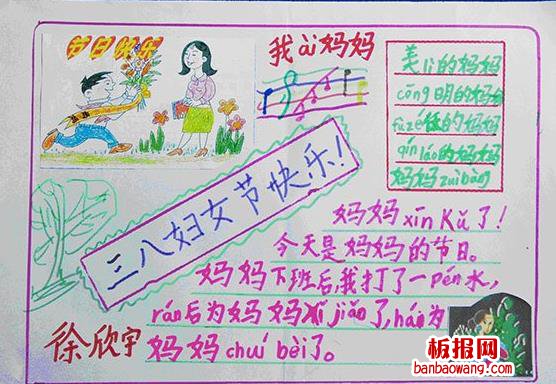 节日快乐
我ài妈妈
美lì的妈妈
cōng明的妈妈
fùzé任的妈妈
qín láo的妈妈
妈妈zuìbàng
三八妇女节快乐!
妈妈xīn Kǔ了!
今天是妈妈的节日。
妈妈下班后,我打了一Pén水,
rán后为妈妈Xǐ jiǎo了,hái为
妈妈chuí bèi了。
徐欣宇
板报网
banbaowang.com